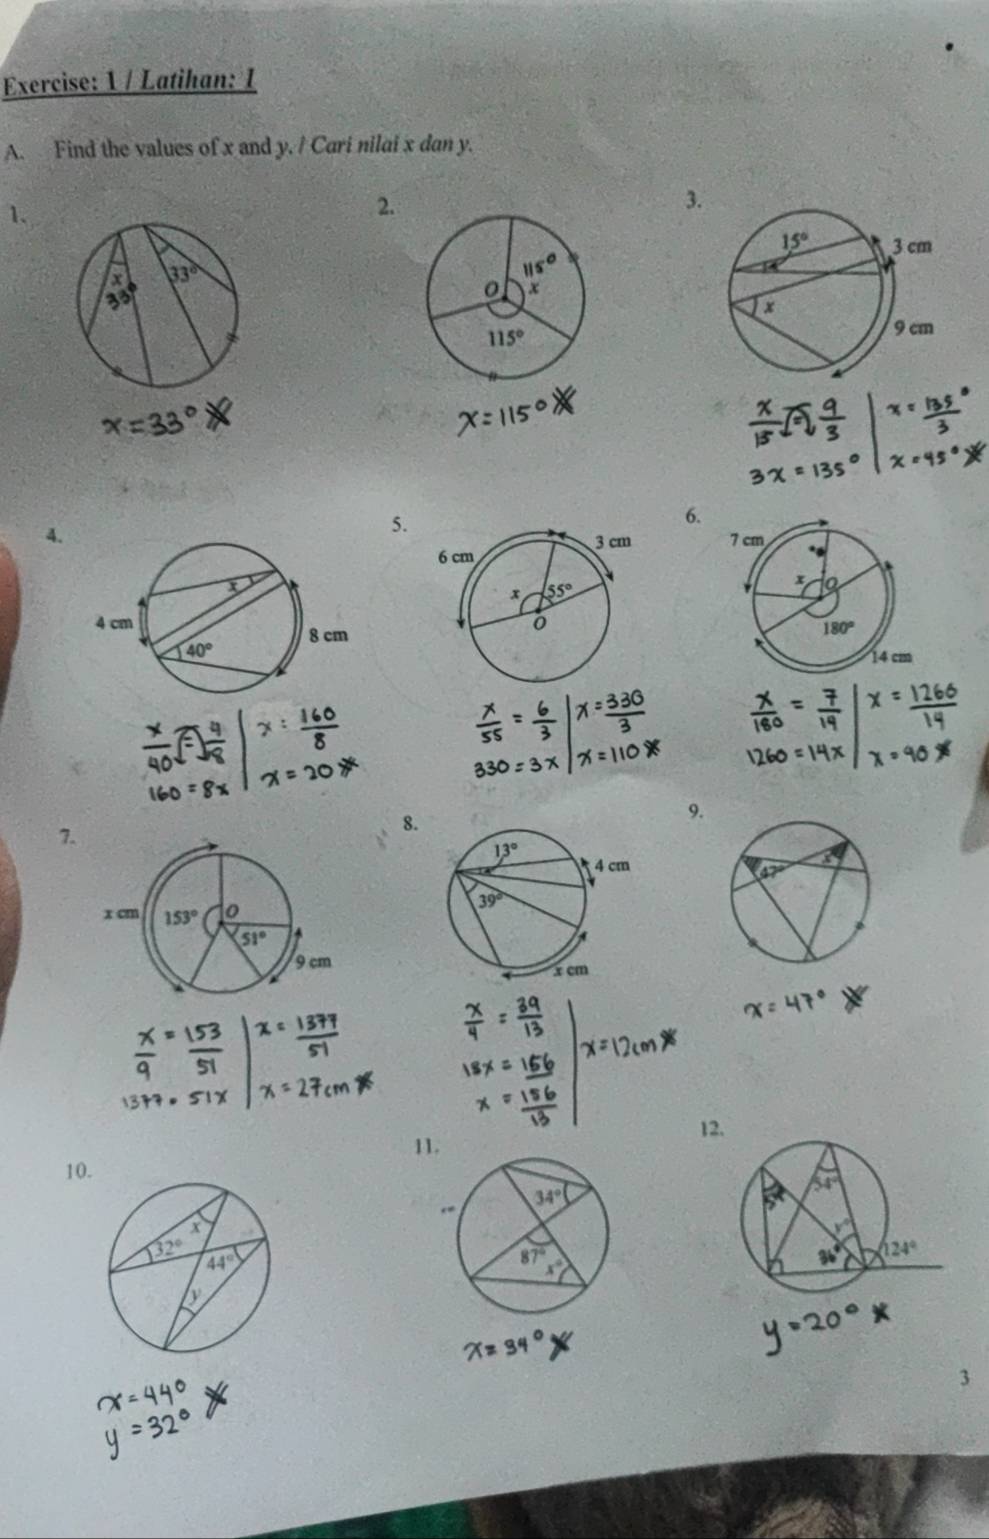 Exercise: 1 / Latihan: 1
A. Find the values of x and y. / Cari nilai x dan y.
1.
x
33°
33°
x = 33°
2.
115°
O
x
115°
x = 115°
3.
15°
3 cm
x
9 cm
x/15 = 9/3
3x = 135°
x = 135°/3
x = 45°
4.
x
4 cm
8 cm
40°
x/40 = 4/8
160 = 8x
x = 160/8
x = 20
5.
6 cm
3 cm
x
55°
O
x/55 = 6/3
330 = 3x
x = 330/3
x = 110
6.
7 cm
x
O
180°
14 cm
x/180 = 7/14
1260 = 14x
x = 1260/14
x = 90
7.
x cm
153°
O
51°
9 cm
x/9 = 153/51
1377 = 51x
x = 1377/51
x = 27cm
8.
13°
4 cm
39°
x cm
x/4 = 39/13
13x = 156
x = 156/13
x = 12cm
9.
47°
x
x = 47°
10.
x
32°
44°
y
x = 44°
y = 32°
11.
34°
87°
x°
x = 34°
12.
54°
54
y°
36°
124°
y = 20°
3